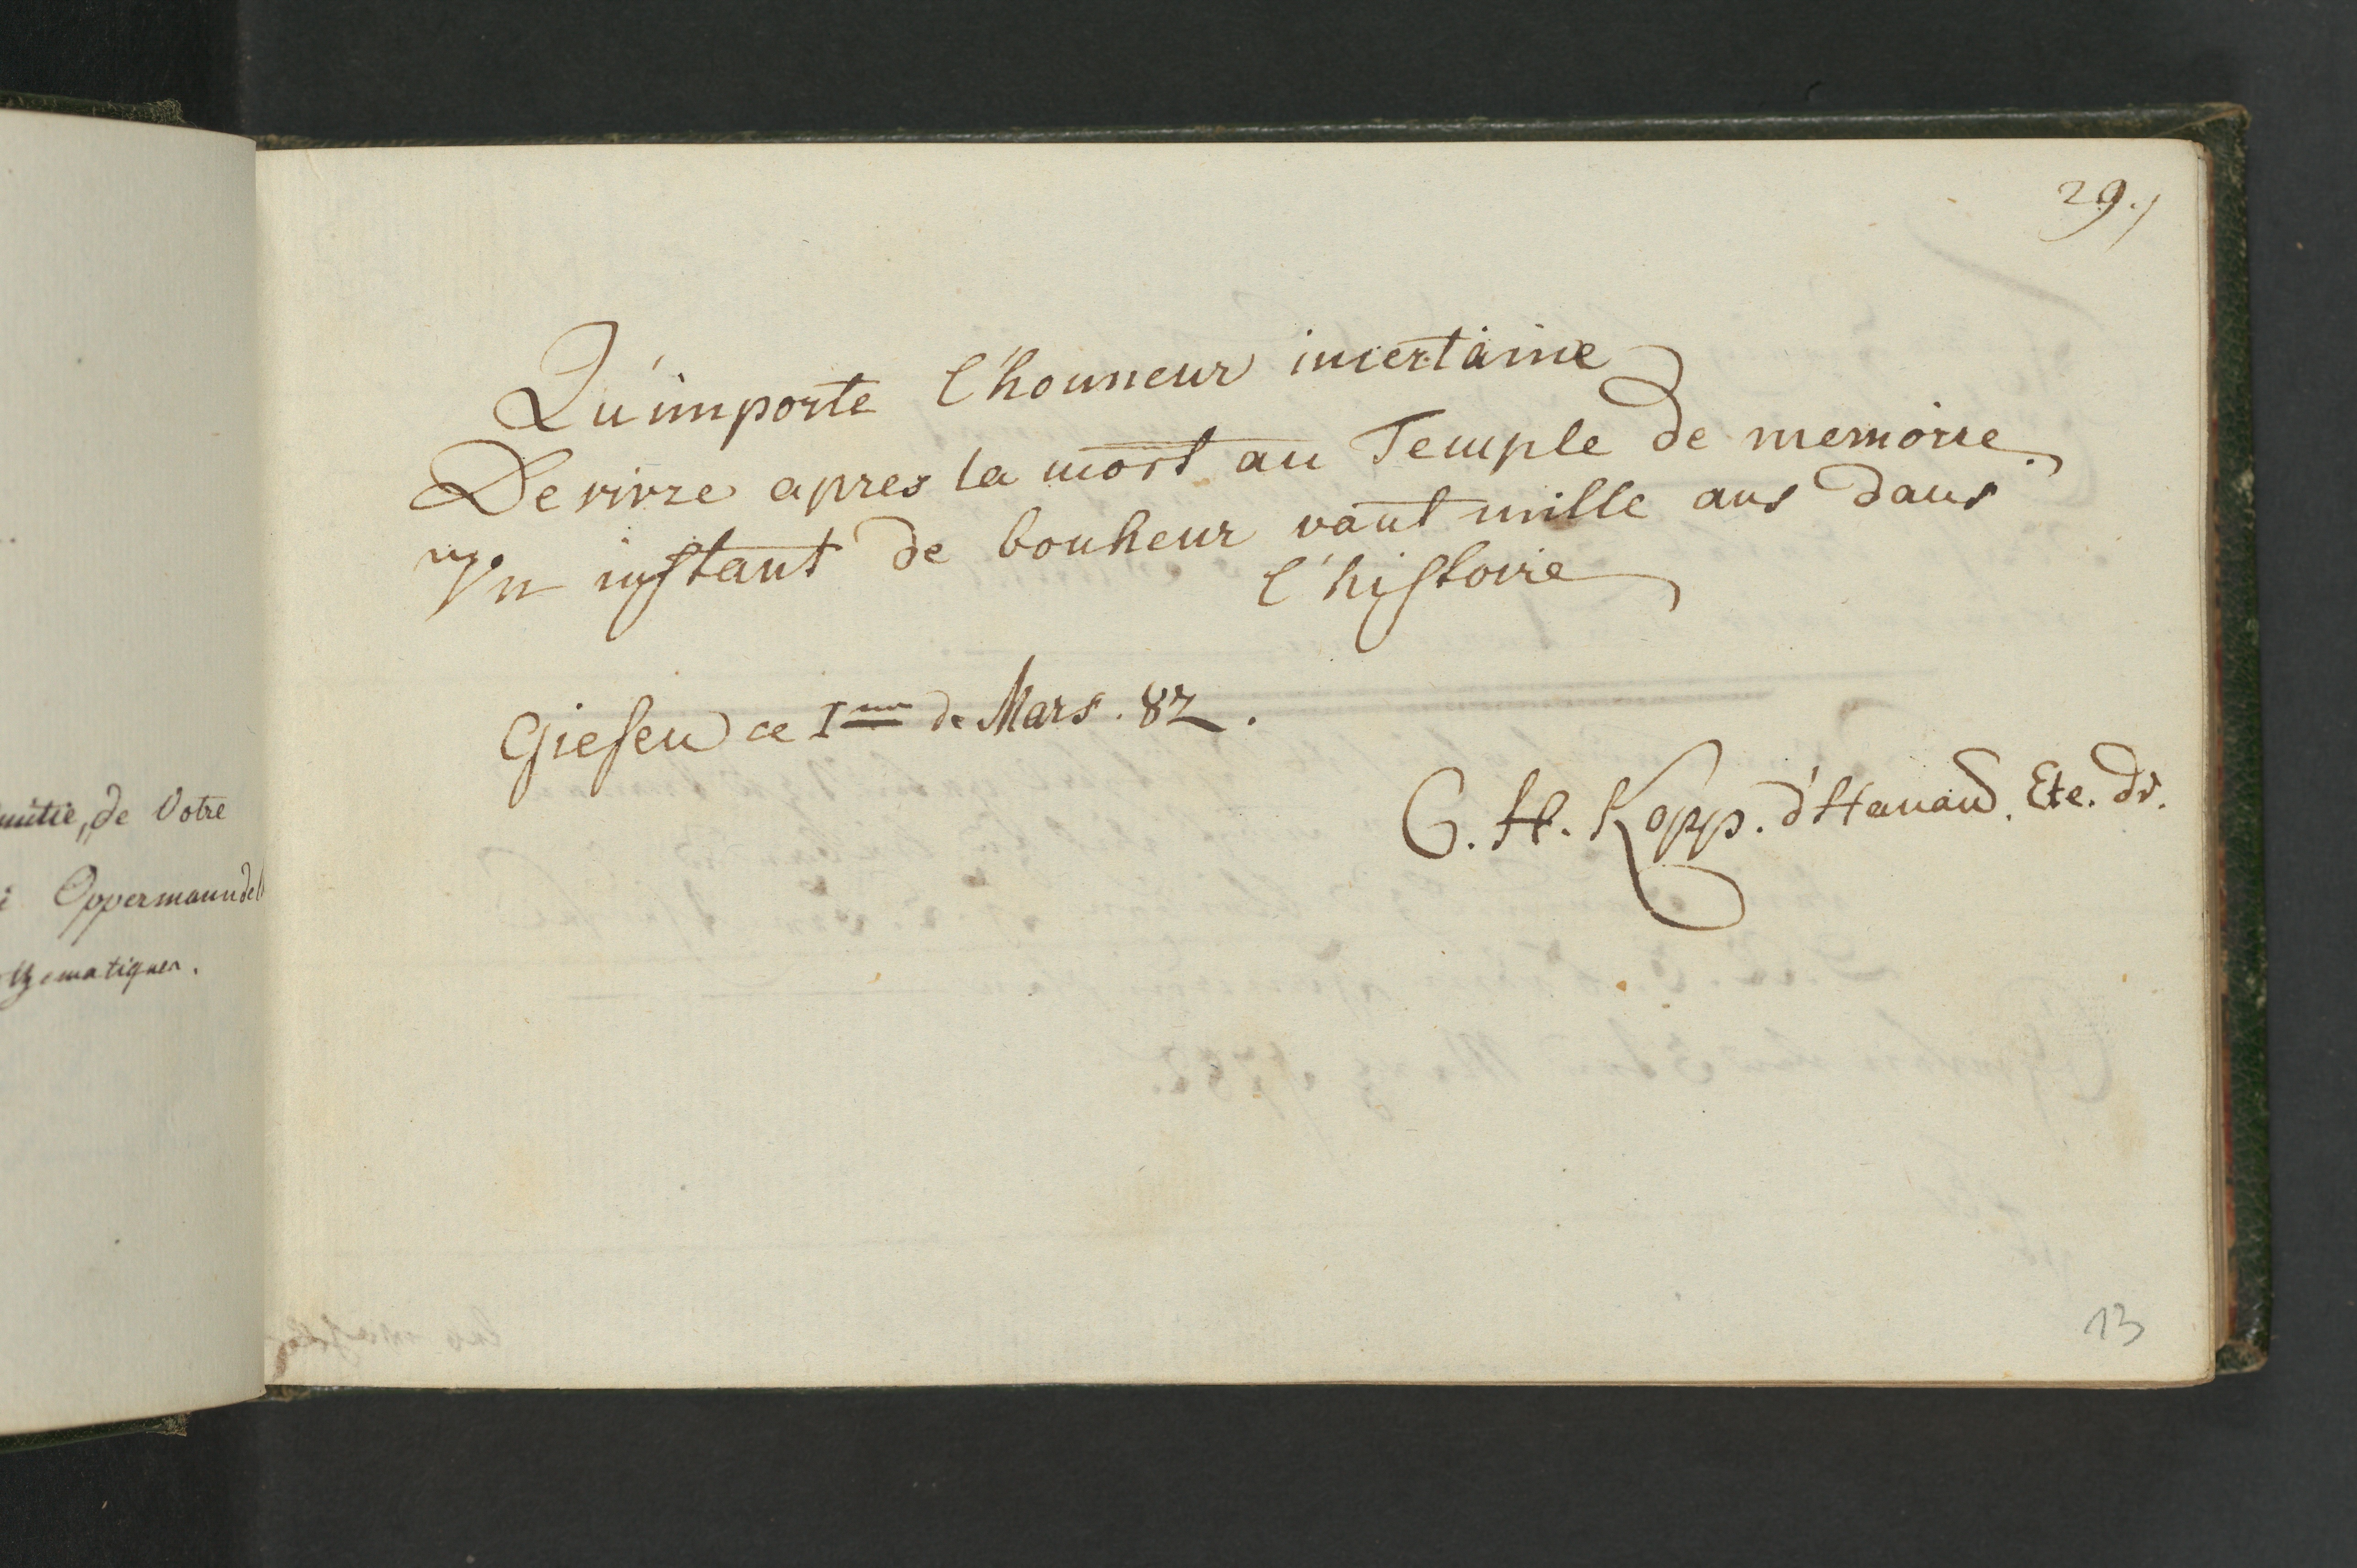 mitie, de Votre
i Oppermann de
thematiques.
29.)
Qu'importe l'honneur incertaine
De vivre apres la mort au Temple de memoire.
Un instant de bonheur vaut mille ans dans
l'histoire
Giesen ce 1m de Mars. 82.
C. H. Kopp. d'Hanau. Ete. dr.
13